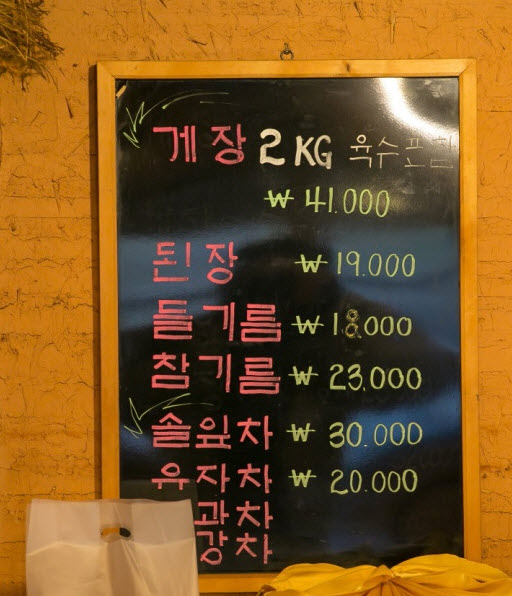 게장 2 KG 육수포함
₩ 41.000
된장 ₩ 19.000
들기름 ₩ 18.000
참기름 ₩ 23,000
솔잎차 ₩ 30.000
유자차 ₩ 20.000
과차
강차